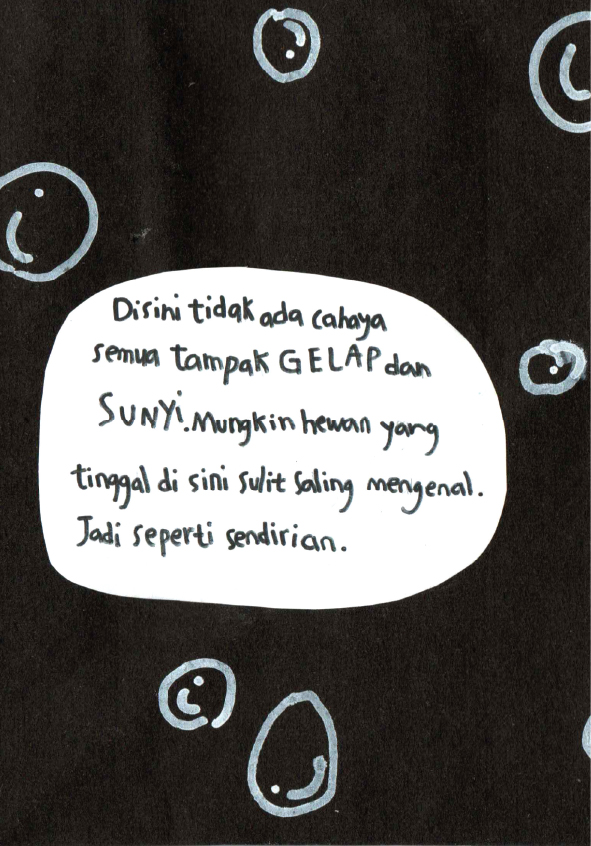 Disini tidak ada cahaya
semua tampak GELAP dan
SUNYi. Mungkin hewan yang
tinggal di sini sulit saling mengenal.
Jadi seperti sendirian.